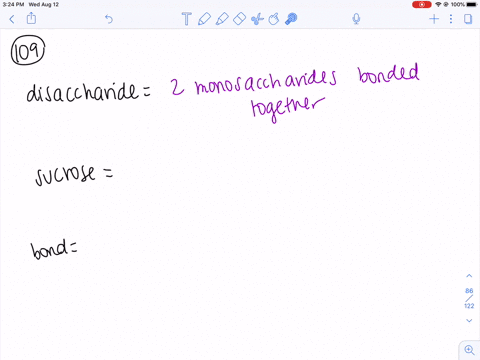 3:24 PM Wed Aug 12
100%
109
disaccharide = 2 monosaccharides bonded
together
sucrose =
bond =
86
122